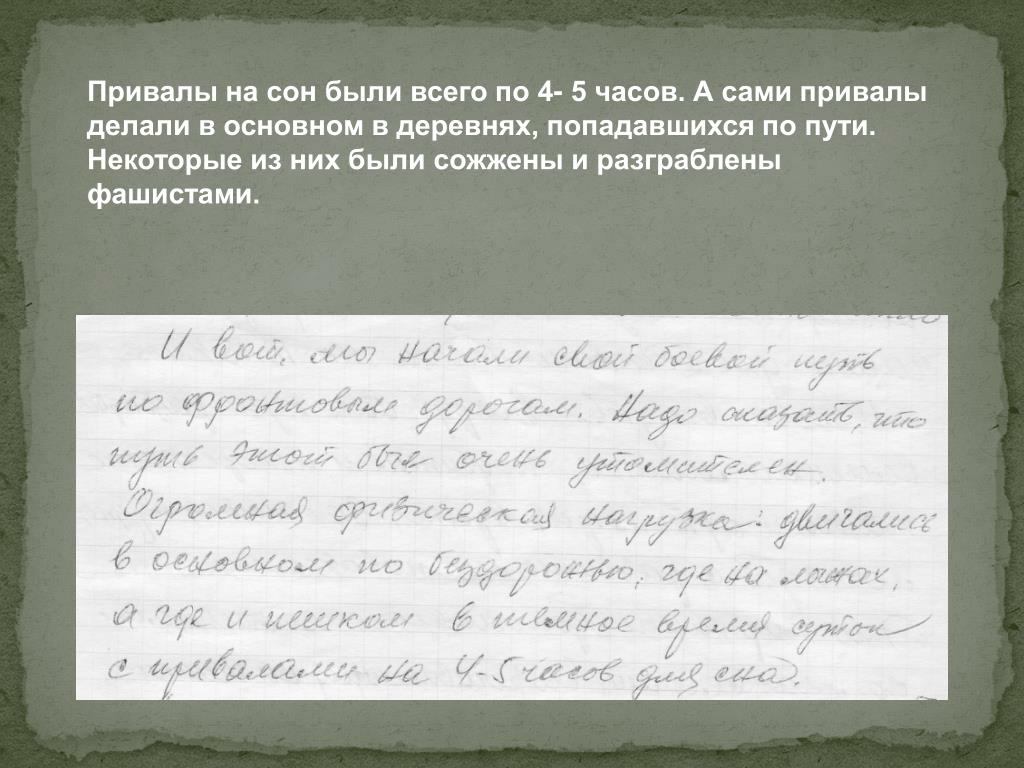 Привалы на сон были всего по 4- 5 часов. А сами привалы
делали в основном в деревнях, попадавшихся по пути.
Некоторые из них были сожжены и разграблены
фашистами.
И вот, мы начали свой боевой путь
по фронтовым дорогам. Надо сказать, что
путь этот был очень утомителен.
Огромная физическая нагрузка: двигались
в основном по бездорожью, где на лыжах,
а где и пешком в темное время суток
с привалами на 4-5 часов для сна.